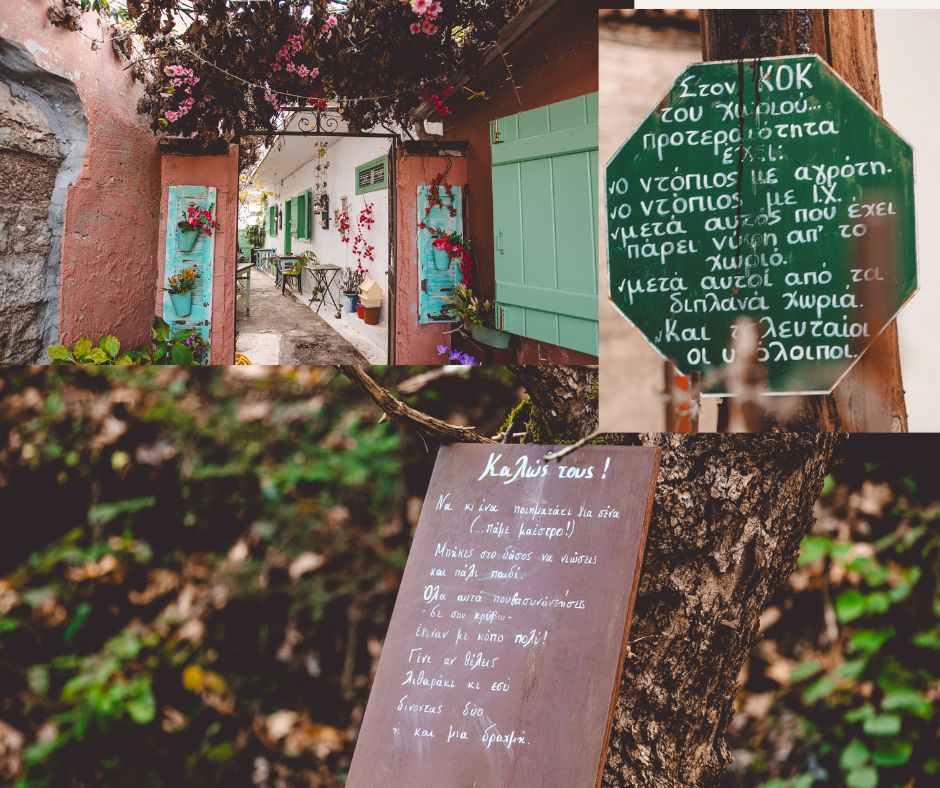 Στον ΚΟΚ
του χωριού..
προτεραιότητα
έχει:
νο ντόπιος με αγρότη.
νο ντόπιος με Ι.Χ.
νμετά αυτός που έχει
πάρει νύφη απ' το
χωριό.
νμετά αυτοί από τα
διπλανά χωριά.
νΚαι τελευταίοι
οι υπόλοιποι.
Καλώς τους!
Να κι ένα ποιηματάκι για σένα
(...πάμε μαέστρο!)
Μπήκες στο δάσος να νιώσεις
και πάλι παιδί.
Όλα αυτά που θα συναντήσεις
- δε σου κρύβω -
έγιναν με κόπο πολύ!
Γίνε αν θέλεις
λιθαράκι κι εσύ
δίνοντας δύο
ή και μια δραχμή.